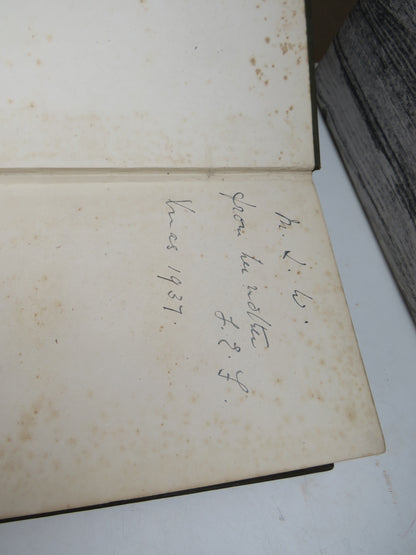 M. L. W.
from her mother
L. E. L.
Xmas 1937.